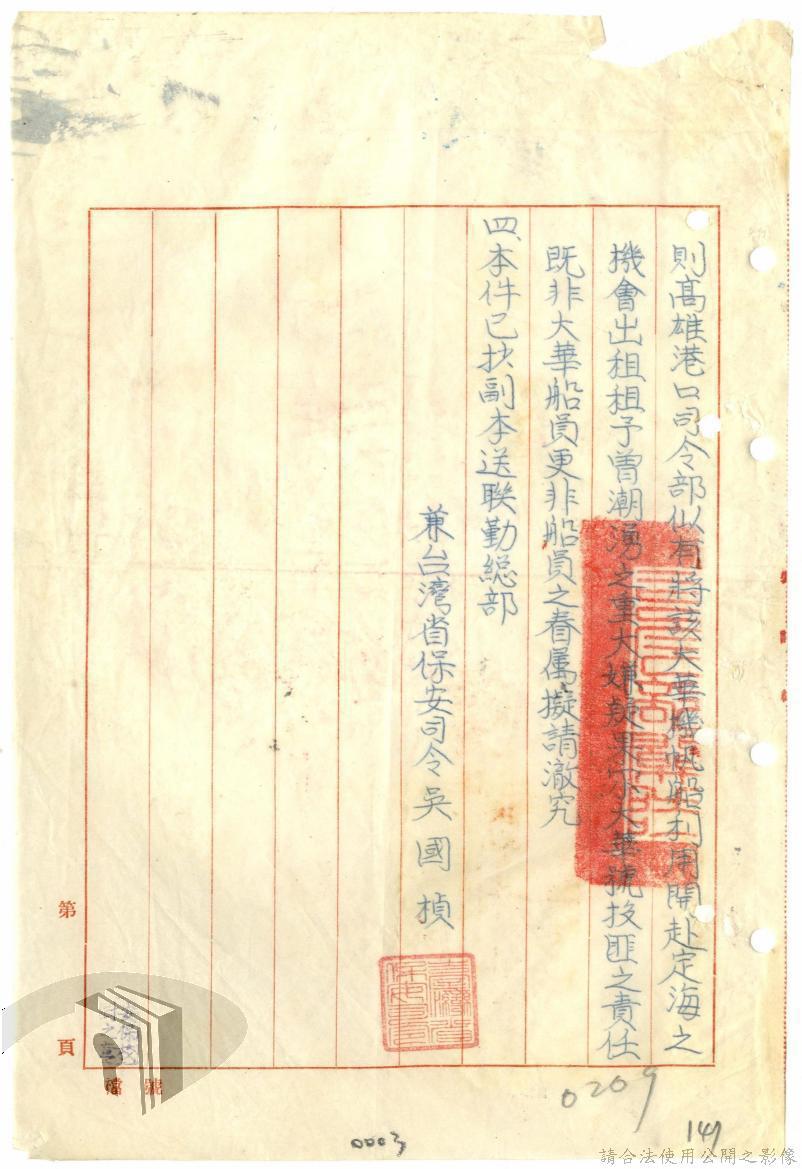 則高雄港口司令部似有將該大華機帆船利用開赴定海之
機會出租租予曾潮湧之重大嫌疑果尔大華號投匪之責任
既非大華船員更非船員之眷属擬請澈究
四、本件已抄副本送聯勤総部
兼台灣省保安司令吳國楨
第
頁
檔號
0209
0003
149
請合法使用公開之影像